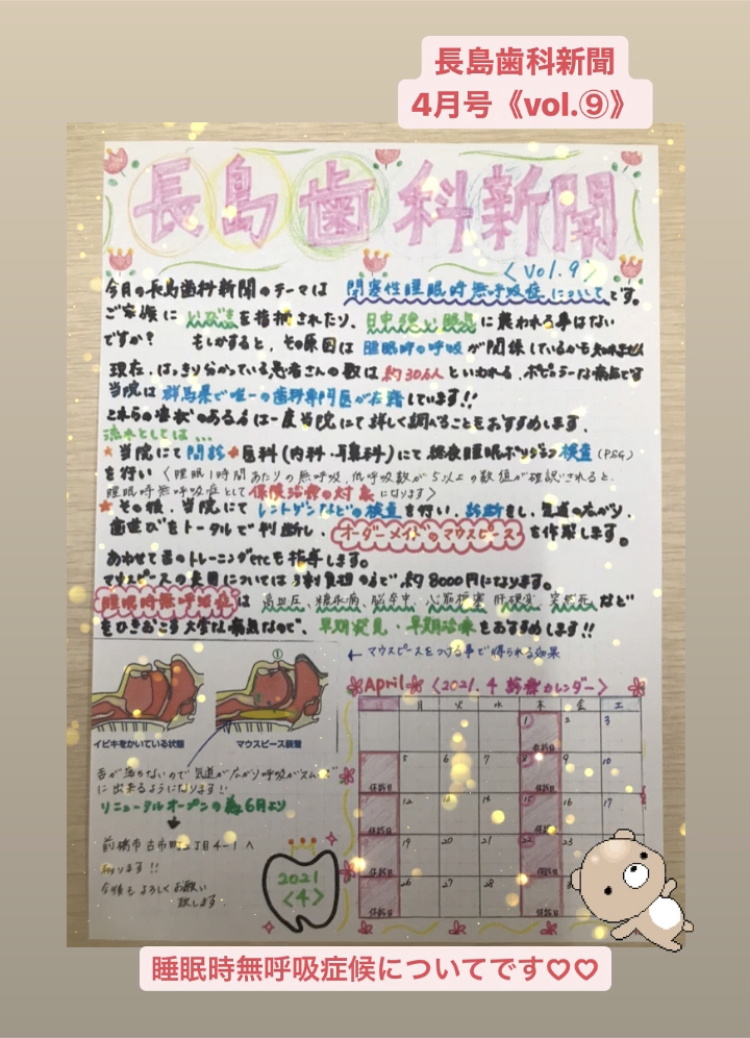 長島歯科新聞
4月号《vol.⑨》
長島歯科新聞
〈vol.9〉
今月の長島歯科新聞のテーマは 閉塞性睡眠時無呼吸症についてです。
ご家族に いびきを指摘されたり、日中強い眠気に襲われる事はない
ですか? もしかすると、その原因は 睡眠時の呼吸が関係しているかも知れません
現在、はっきり分かっている患者さんの数は約30万人といわれる、ポピュラーな病気です
当院は群馬県で唯一の歯科専門医が在籍しています!!
これらの症状のある方は一度当院にて詳しく調べることをおすすめします。
流れとしては...
★当院にて問診→医科(内科・耳鼻科)にて終夜睡眠ポリソムノ検査(PSG)
を行い〈睡眠1時間あたりの無呼吸、低呼吸数が5以上の数値が確認されると、
睡眠時無呼吸症として保険治療の対象になります〉
★その後、当院にてレントゲンなどの検査を行い、診断をし、気道の広がり、
歯並びをトータルで判断し、オーダーメイドのマウスピースを作製します。
あわせて舌のトレーニングetcも指導します。
マウスピースの費用については3割負担の方で、約8000円になります。
睡眠時無呼吸症は 高血圧、糖尿病、脳卒中、心筋梗塞、肝硬変、突然死 など
をひきおこす大変な病気なので、早期発見・早期治療をおすすめします!!
←マウスピースをつける事で得られる効果
①
イビキをかいている状態
マウスピース装着
舌が落ちないので気道が広がり呼吸がスムーズ
に出来るようになります!!
リニューアルオープンの為6月より
↓
前橋市古市町二丁目4-1へ
移ります!!
今後もよろしくお願い
致します。
2021
〈4〉
April 〈2021.4 診療カレンダー〉
日 月 火 水 木 金 土
1 2 3
休診日
5 6 7 8 9 10
休診日 休診日
12 13 14 15 16 17
休診日 休診日
19 20 21 22 23
休診日 休診日
26 27 28
休診日 休診日
睡眠時無呼吸症候についてです♡♡